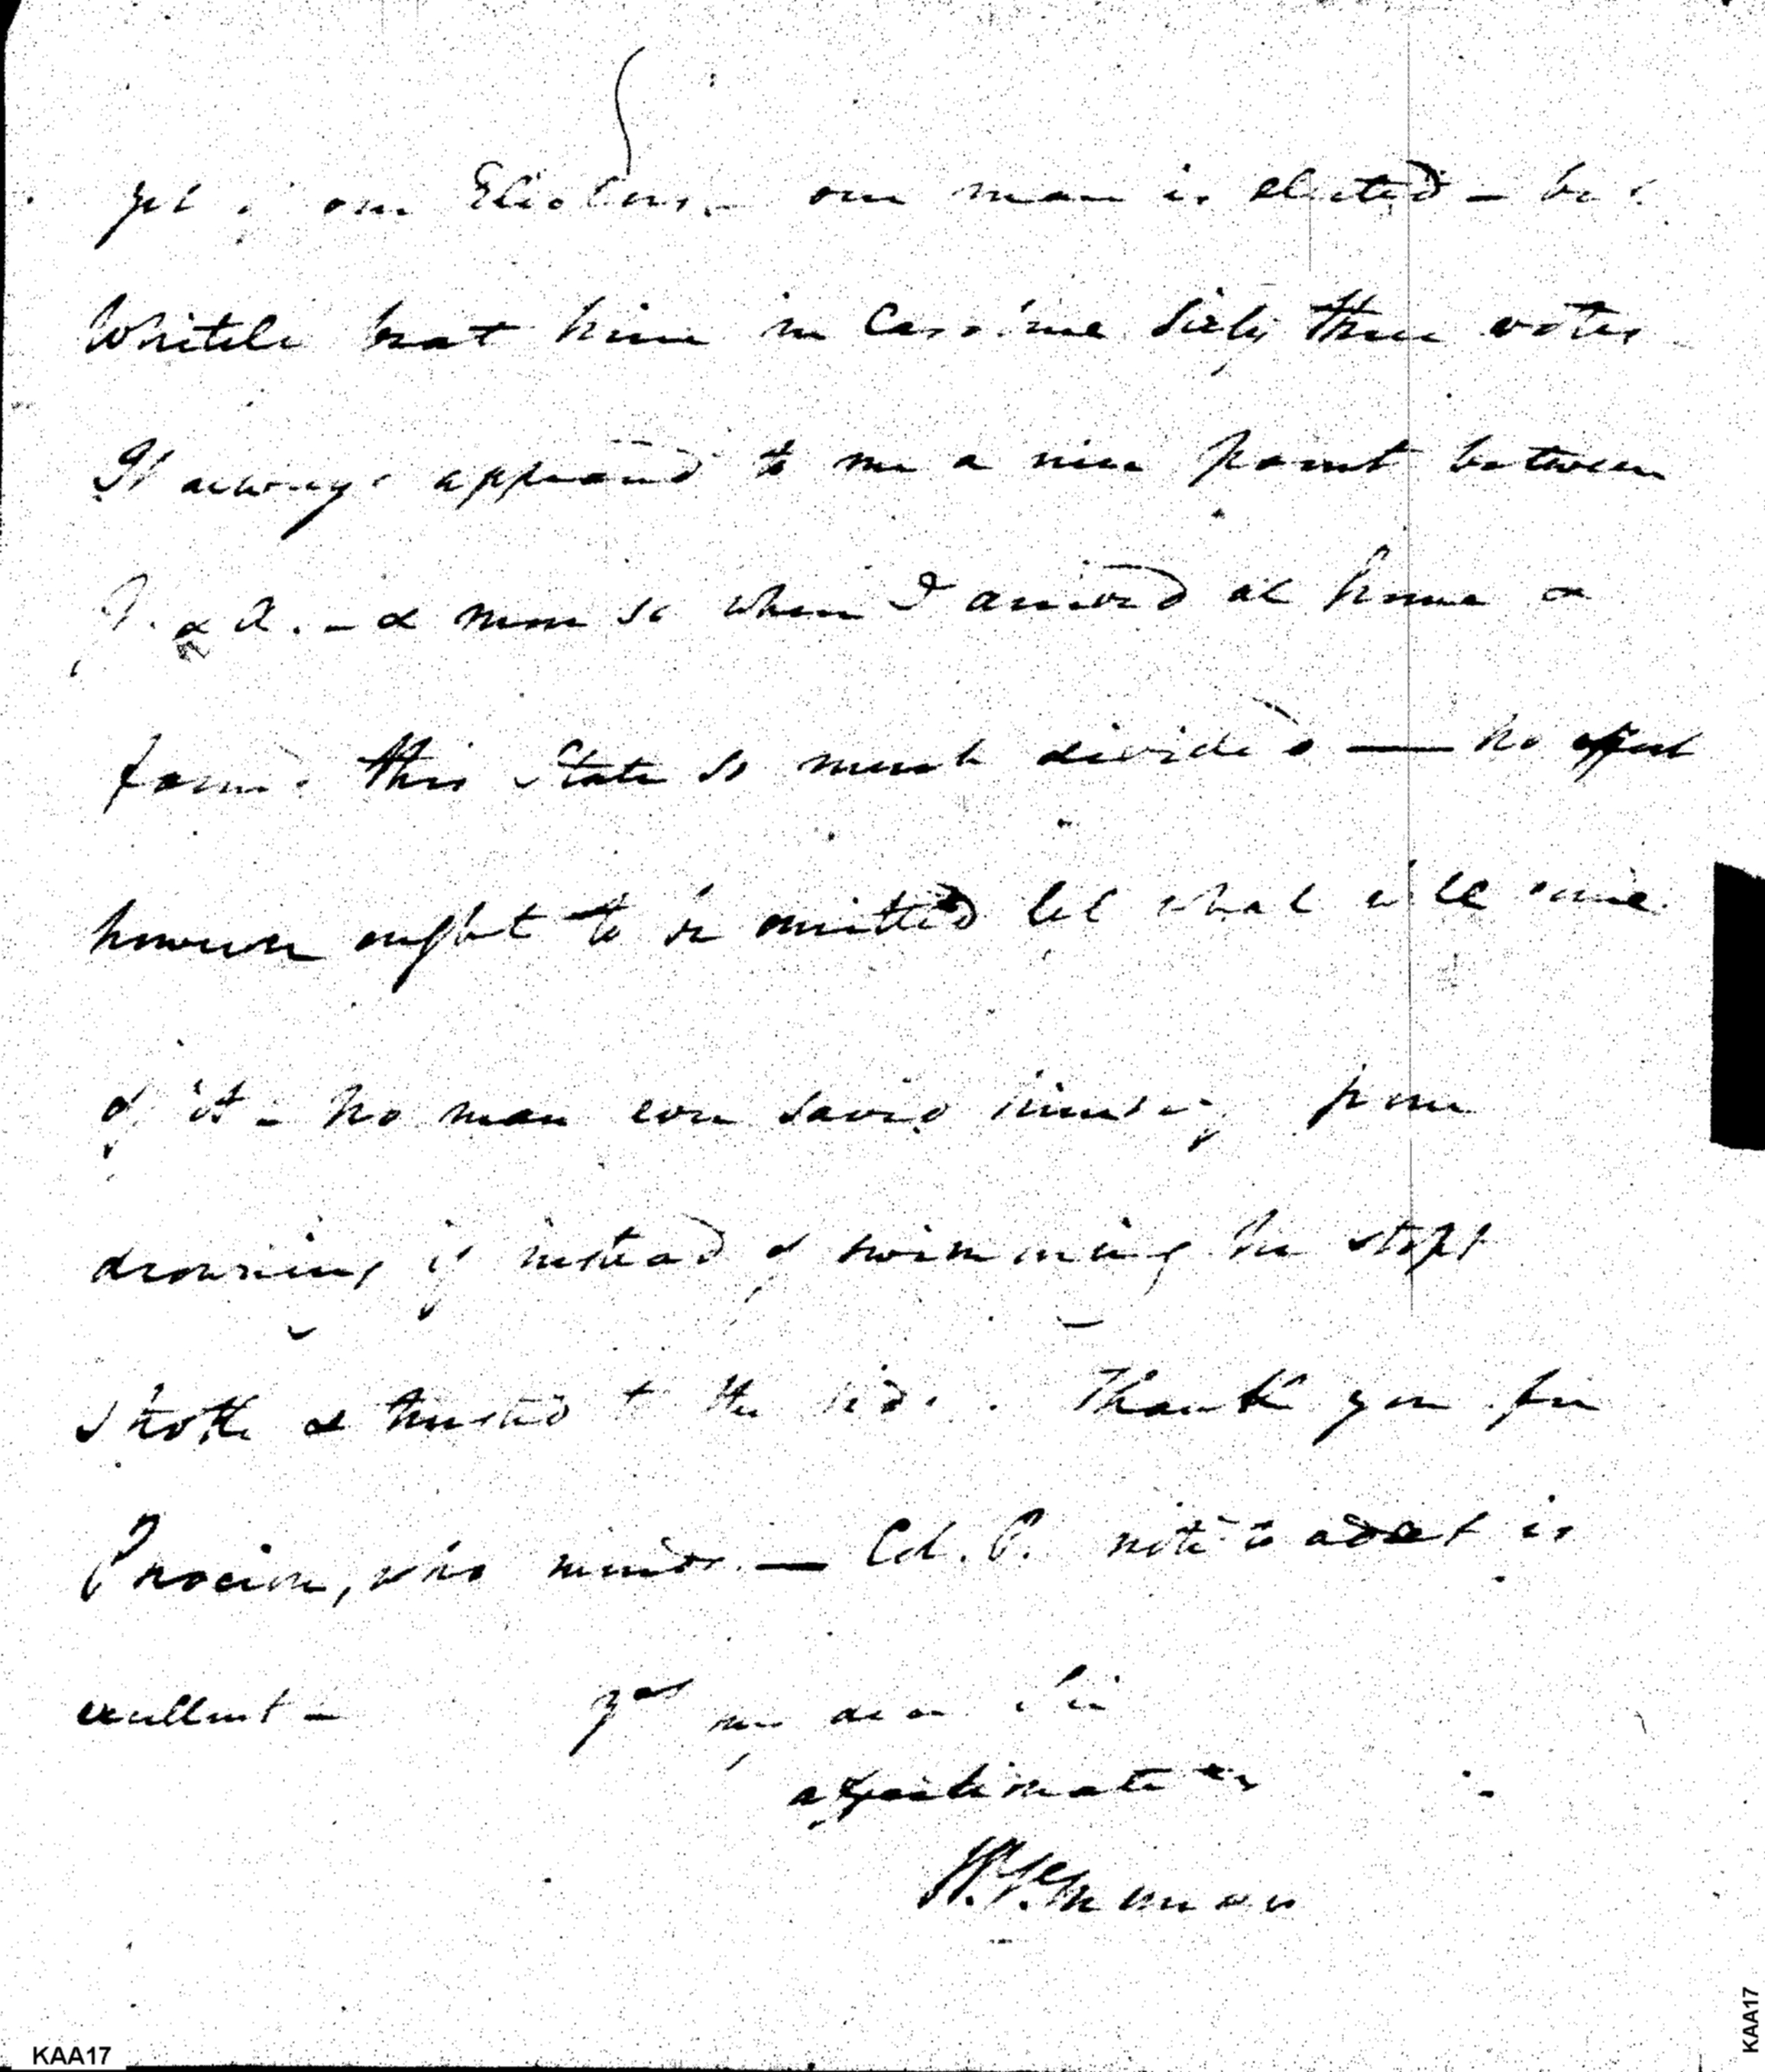 yet of our Elections. our man is elected – but
Whitele beat him in Caroline sixty three votes
It always appeard to me a nice point between
J. & A. – & more so when I arrived at home &
found this State so much divided — no effort
however ought to be omitted let what will come
of it – No man ever saved himself from
drowning if instead of swimming he stopt
stroke & trusted to the tide. Thank you for
Phocion, who writes. — Col. P. note to adet is
excellent – yrs my dear Sir
affectionately
W. V. Murray
KAA17
KAA17